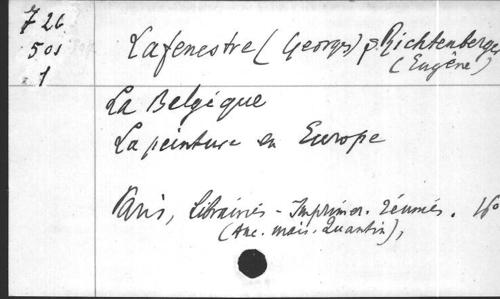 726
501
1
Lafenestre (Georges) & Richtenberger
(Eugène)
La Belgique
La peinture en Europe
Paris, Librairies-Imprimer. réunies.
(Anc. mais. Quantin),